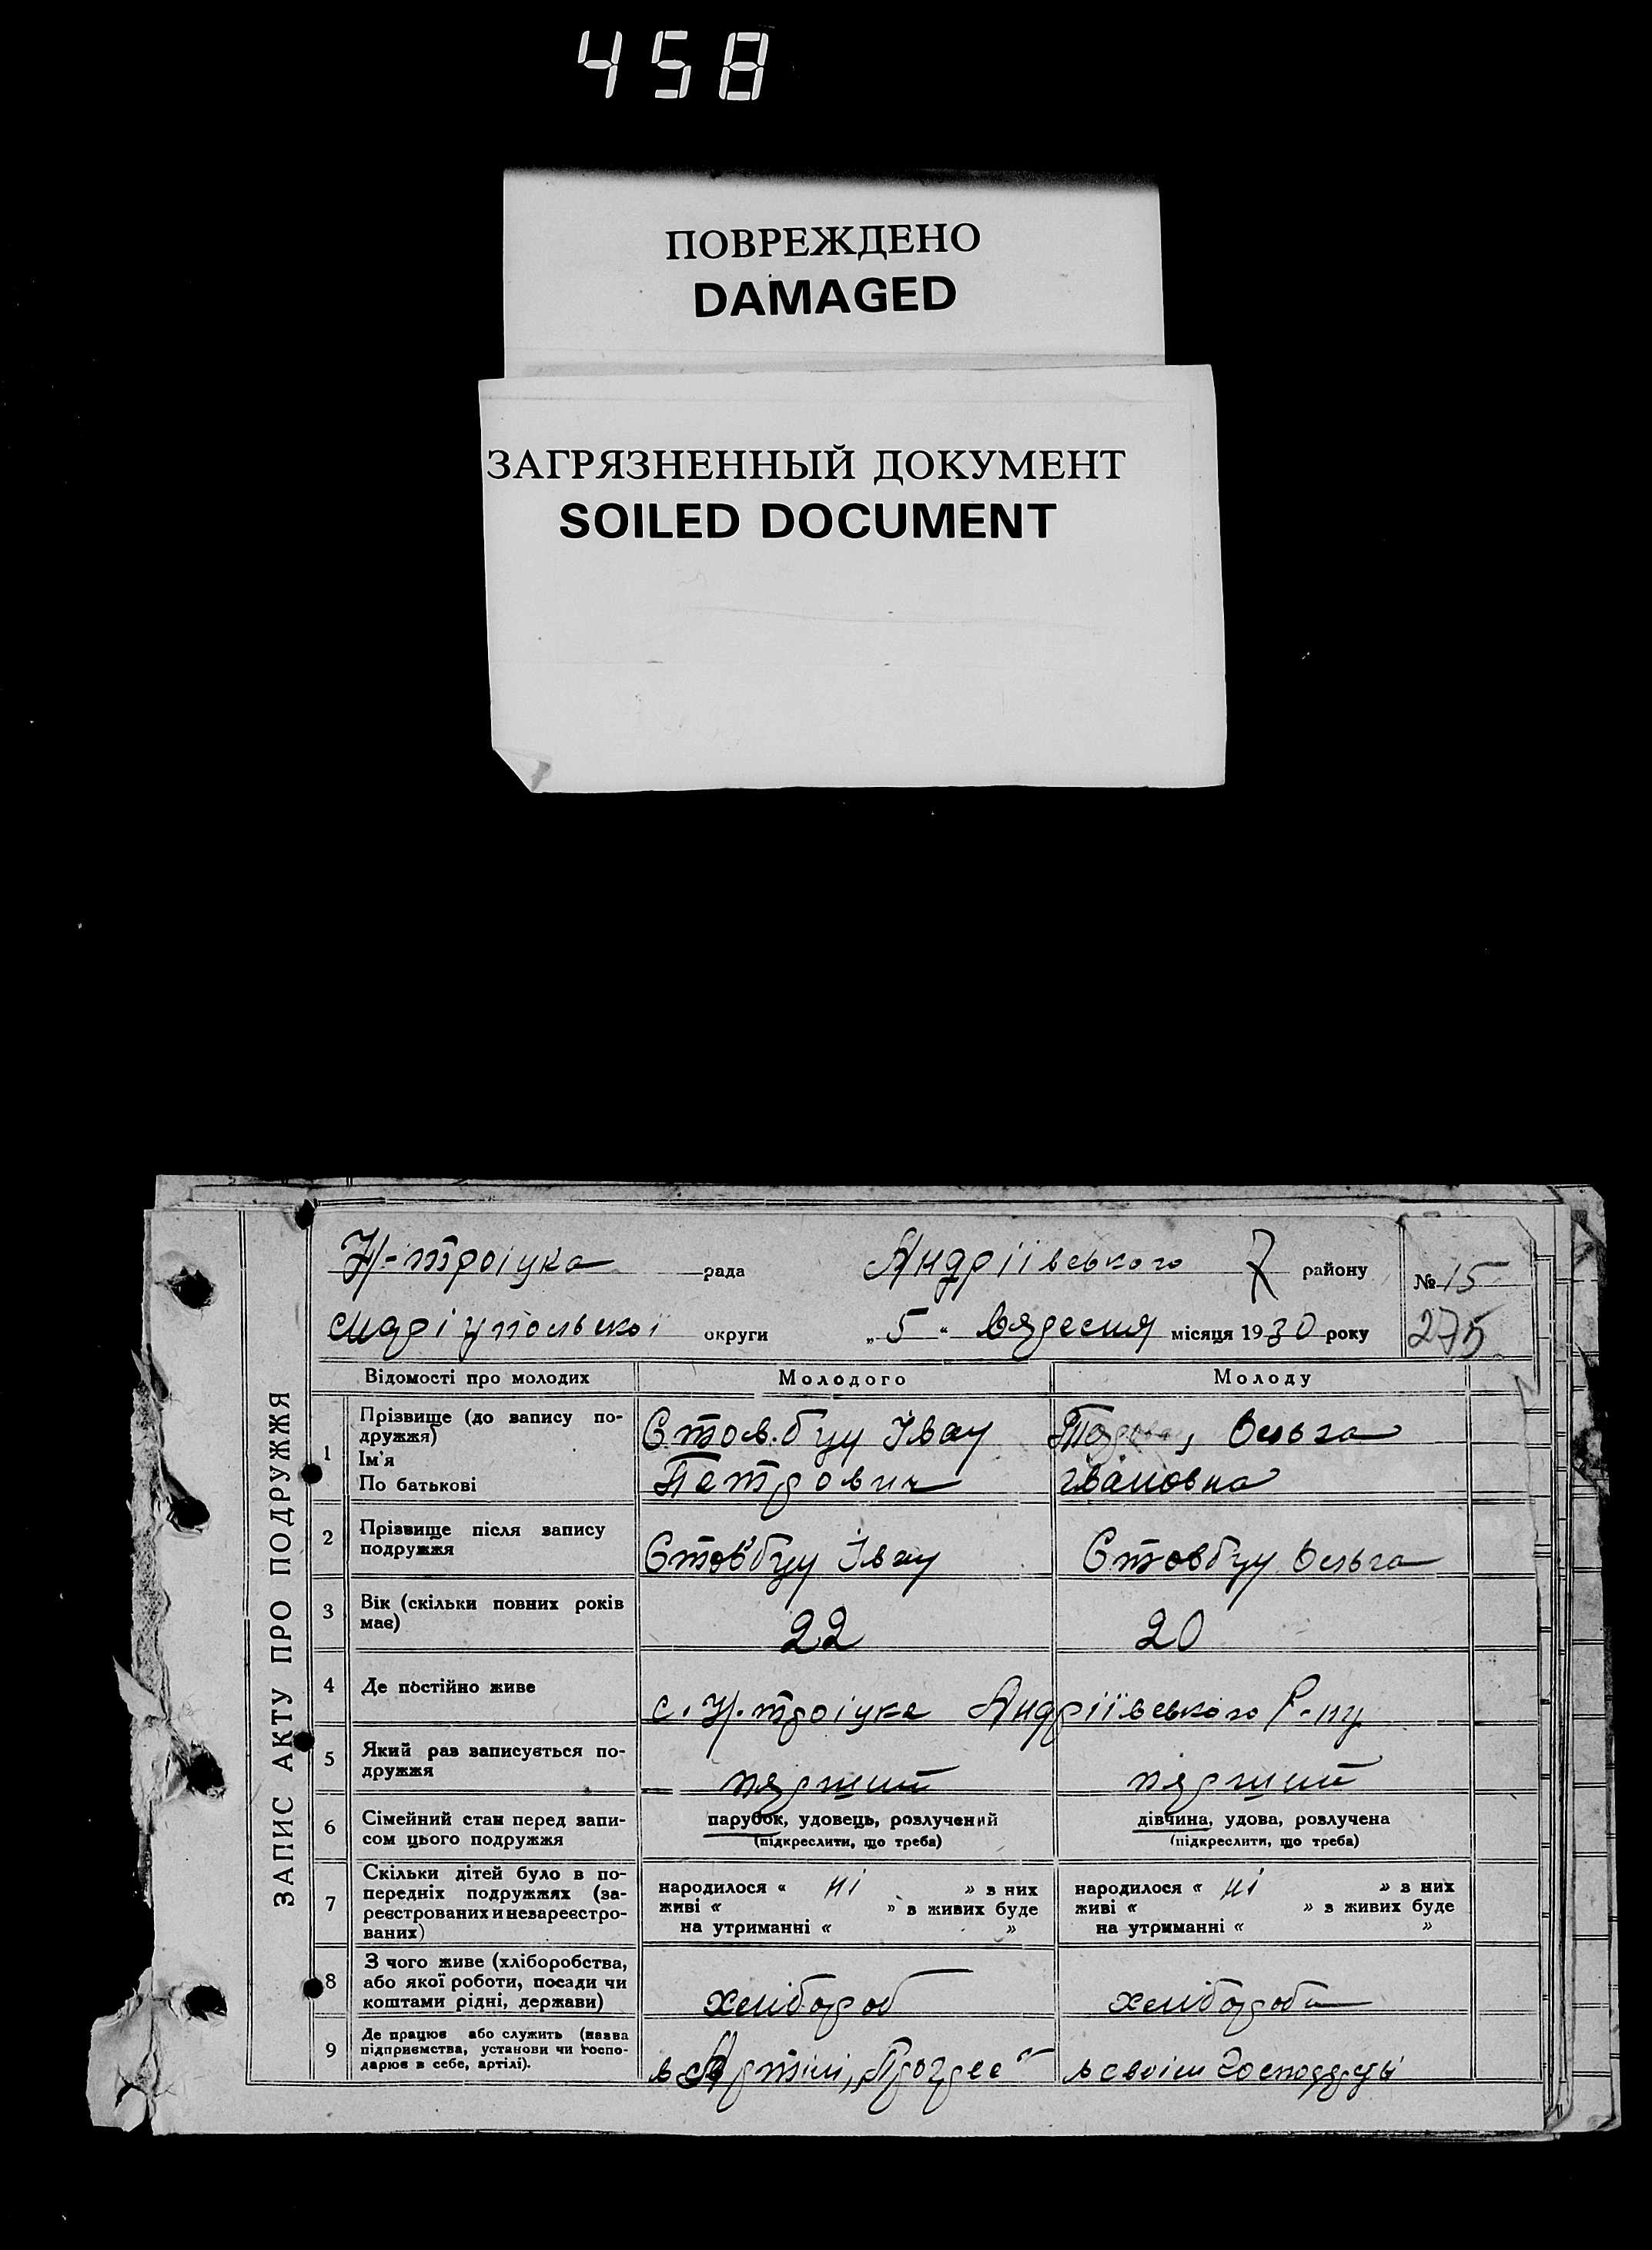 458
ПОВРЕЖДЕНО
DAMAGED
ЗАГРЯЗНЕННЫЙ ДОКУМЕНТ
SOILED DOCUMENT
ЗАПИС АКТУ ПРО ПОДРУЖЖЯ
Н-троіцка рада Андріівського району № 15
Маріупольскоі округи „5“ вяресня місяця 1930 року 275
Відомості про молодих Молодого Молоду
1 Прізвище (до запису по-
дружжя)
Ім'я
По батькові
Стовбун Іван
Петрович
Вольга
Івановна
2 Прізвище після запису
подружжя
Стовбун Іван Стовбун Вольга
3 Вік (скільки повних років
має)
22 20
4 Де постійно живе с. Н.троіцке Андріївського Р-ну
5 Який раз записується по-
дружжя
пярший пярший
6 Сімейний стан перед запи-
сом цього подружжя
парубок, удовець, розлучений
(підкреслити, що треба)
дівчина, удова, розлучена
(підкреслити, що треба)
7 Скільки дітей було в по-
передніх подружжях (за-
реєстрованих и незареєстро-
ваних)
народилося « ні » з них
живі « » з живих буде
на утриманні « »
народилося « ні » з них
живі « » з живих буде
на утриманні « »
8 З чого живе (хліборобства,
або якої роботи, посади чи
коштами рідні, держави)
хлібороб хлібороба
9 Де працює або служить (назва
підприємства, установи чи госпо-
дарює в себе, артілі).
в Артілі „Прогрес“ в своім Господарці